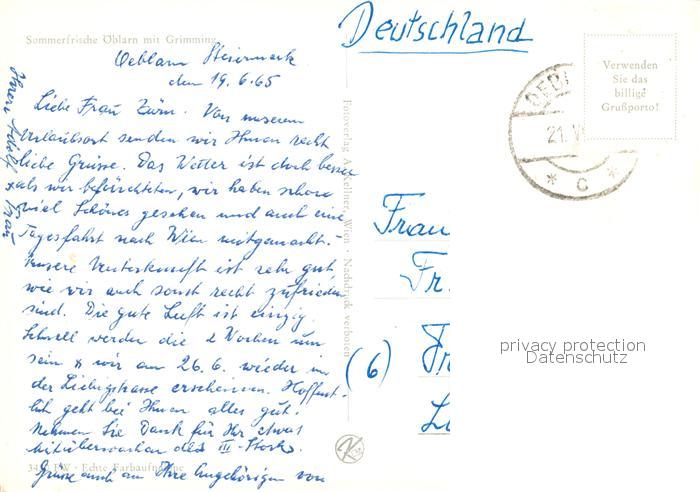 Sommerfrische Öblarn mit Grimming
Oeblarn Steiermark
den 19.6.65
Liebe Frau Zürn. Von unserem
Urlaubsort senden wir Ihnen recht
liebe Grüsse. Das Wetter ist doch besser
als wir befürchteten, wir haben schon
viel Schönes gesehen und auch eine
Tagesfahrt nach Wien mitgemacht.-
Unsere Unterkunft ist sehr gut,
wie wir auch sonst recht zufrieden
sind. Die gute Luft ist einzig.
Schnell werden die 2 Wochen um
sein & wir am 26.6. wieder in
der Liebigstrasse erscheinen. Hoffent-
lich geht bei Ihnen alles gut.
Nehmen Sie Dank für Ihr etwas
mitüberwachen des III-Stocks.
Grüsse auch an Ihre Angehörigen von
Ihrem Adolf & Frau
Echte Farbaufnahme
Fotoverlag A. Kellner, Wien · Nachdruck verboten
Deutschland
Verwenden
Sie das
billige
Grußporto!
OEB
21.VI
* C *
Frau
Fr.
(6) Fr
L
privacy protection
Datenschutz